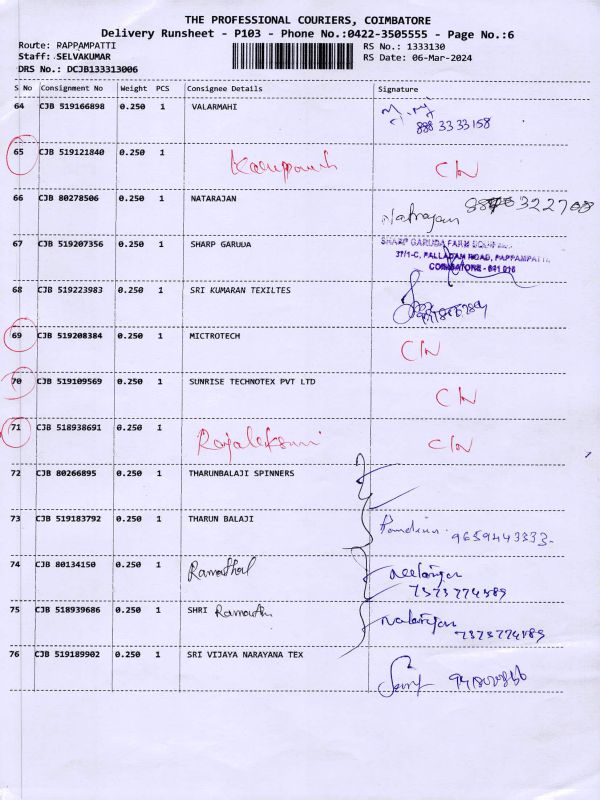 THE PROFESSIONAL COURIERS, COIMBATORE
Delivery Runsheet - P103 - Phone No.:0422-3505555 - Page No.:6
Route: PAPPAMPATTI RS No.: 1333130
Staff: SELVAKUMAR RS Date: 06-Mar-2024
DRS No.: DCJB133313006
S No Consignment No Weight PCS Consignee Details Signature
64 CJB 519166898 0.250 1 VALARMAHI
888 3333158
65 CJB 519121840 0.250 1 C/N
66 CJB 80278506 0.250 1 NATARAJAN
Natrajan
67 CJB 519207356 0.250 1 SHARP GARUDA SHARP GARUDA FARM
37/1-C, PALLADAM ROAD, PAPPAMPATTI,
COIMBATORE - 641 016
68 CJB 519223983 0.250 1 SRI KUMARAN TEXILTES
69 CJB 519208384 0.250 1 MICTROTECH C/N
70 CJB 519109569 0.250 1 SUNRISE TECHNOTEX PVT LTD C/N
71 CJB 518938691 0.250 1 C/N
72 CJB 80266895 0.250 1 THARUNBALAJI SPINNERS
73 CJB 519183792 0.250 1 THARUN BALAJI
9659443333-
74 CJB 80134150 0.250 1 Ramathal
7373774589
75 CJB 518939686 0.250 1 SHRI
Natarajan
7373774589
76 CJB 519189902 0.250 1 SRI VIJAYA NARAYANA TEX